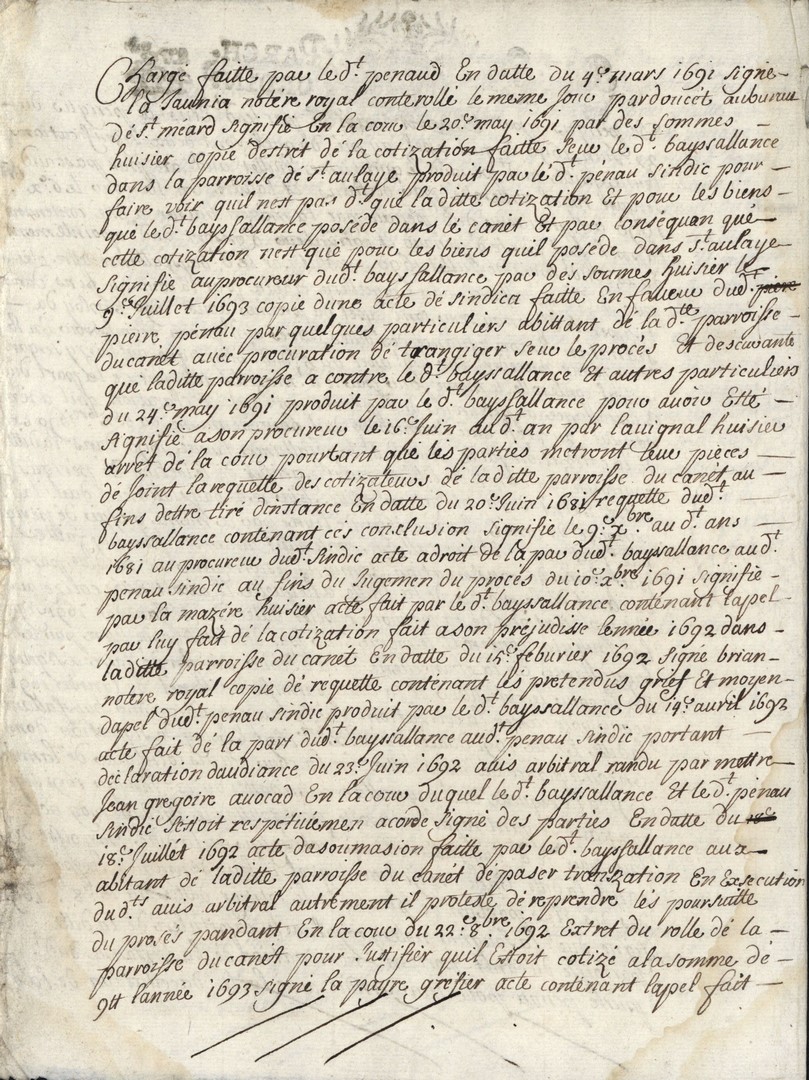 Charge faitte par le dt. penaud En datte du 4e. mars 1691 signé
la Jaunia notére royal controllé le meme Jour par doucet aubureau
dé st. méard signifié En la cour le 20e. may 1691 par des sommes
huisier copie destrét dé la cotization faitte seur le dt. bayssallance
dans la parroisse dé st. aulaye produit par le dt. pénau sindic pour
faire voir quil nest pas dt. que la ditte cotization Et pour les biens
qué le dt. bayssallance poséde dans lé canét Et par conséquan qué
cette cotization n'est qué pour les biens quil poséde dans st. aulaye
signifié auprocureur dudt. bayssallance par dés sommes huisier le
9e. Juillet 1693 copie dune acte dé sindica faitte En faveur dudt.
pierre pénau par quelques particuliers abittant dé la dte. parroisse
du canét avéc procuration dé trangiger seur le procés Et descuvante
qué laditte parroisse a contre le dt. bayssallance Et autres particuliers
du 24e. may 1691 produit par le dt. bayssallance pour avoir Etté
signifié a son procureur le 16e. Juin audt. an par lavignal huisier
arrét dé la cour pourtant qué lés parties métront leur pieces
dé Joint la requétte des cotizateurs dé laditte parroisse du canét, au
fins dettre tiré dinstance En datte du 20e. Juin 1681 requette dudt.
bayssallance contenant ces conclusion signifié le 9e. 7bre. audt. ans
1681 au procureur dudt. sindic acte adroit dé la par dudt. bayssallance audt.
penau sindic au fins du Jugemen du procés du 10e. xbre. 1691 signifié
par la mazére huisier acte fait par le dt. bayssallance contenant lapel
par luy fait dé la cotization fait a son préjudisse lennée 1692 dans
laditte parroisse du canét En datte du 15e. féburier 1692 signé brian
notére royal copie dé requette conténant lés prétendus grief Et moyen
dapel dudt. penau sindic produit par le dt. bayssallance du 14e. avril 1692
acte fait dé la part dudt. bayssallance audt. penau sindic portant
déclaration daudiance du 23e. Juin 1692 avis arbitral randu par mettre
Jean gregoire avocad En la cour duquel le dt. bayssallance Et le dt. pénau
sindic séstoit respétivémen acordé signé des parties En datte du
18e. Juillet 1692 acte dasoumasion faitte par le dt. bayssallance aux
abitant dé laditte parroisse du canét dé paser tranzation En Exsecution
du dts. avis arbitral autrément il protesté dé réprendre lés poursuitte
du prosés pandant En la cour du 22e. 8bre. 1692 Extret du rolle dé la
parroisse du canét pour Justifier quil Estoit cotizé a la somme dé
94tt lannée 1693 signé la payre gréfier acte contenant lapel fait